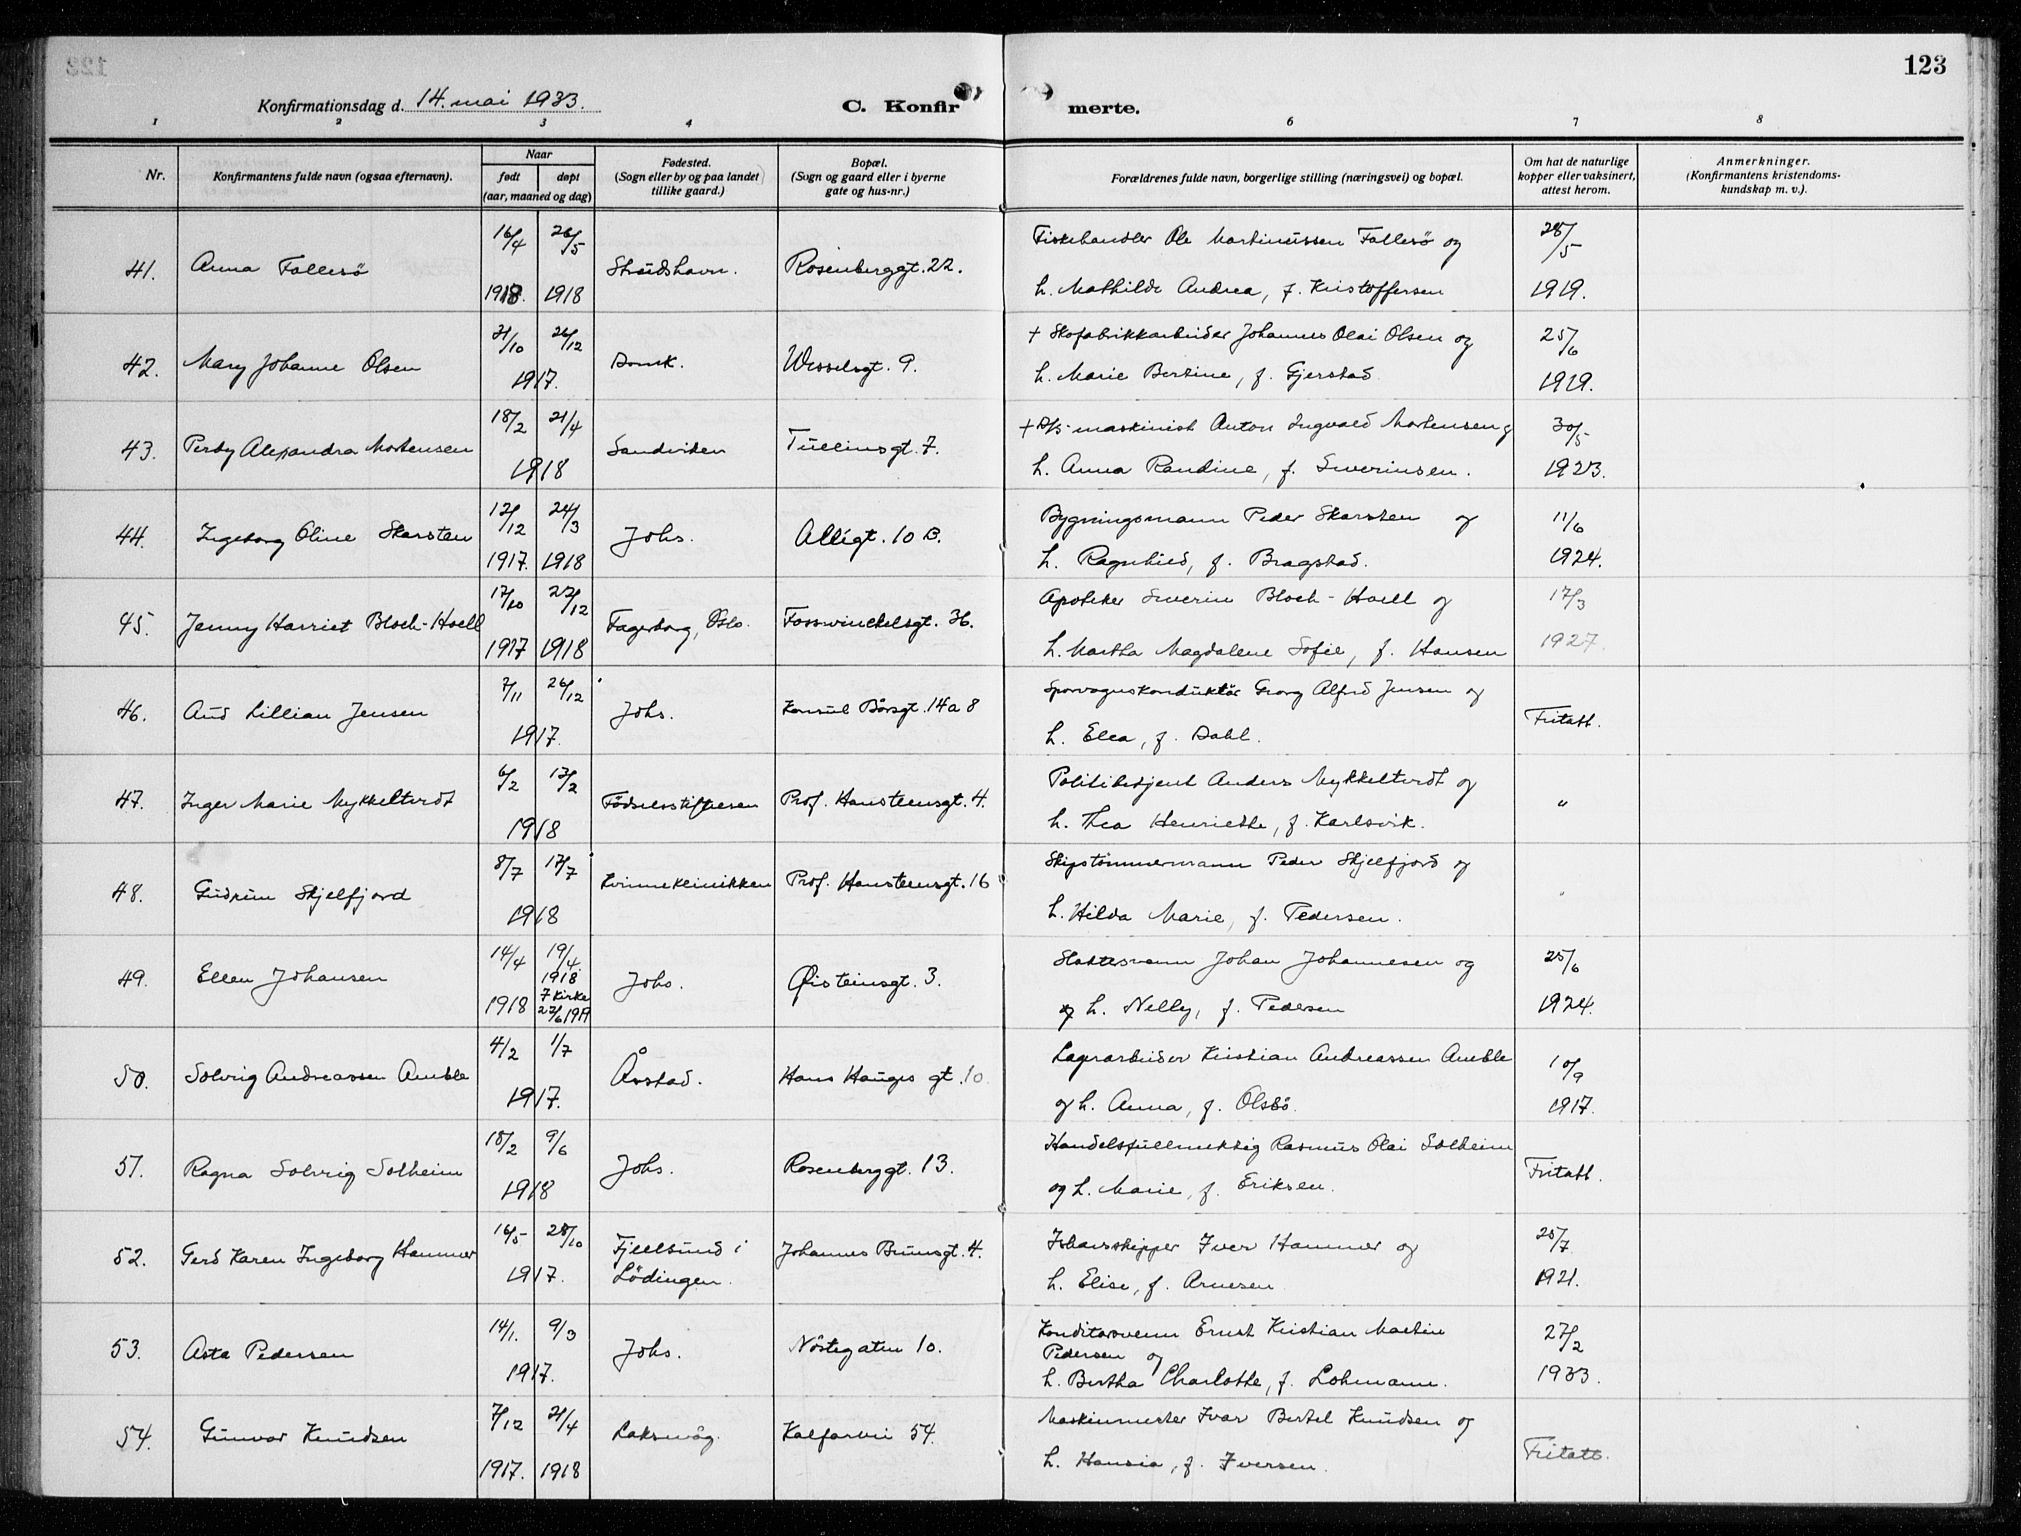 123
Konfirmationsdag d. 14. mai 1933.
C. Konfirmerte.
1 2 3 4 6 7 8
Nr.
Konfirmantens fulde navn (ogsaa efternavn).
Naar
født døpt
(aar, maaned og dag)
Fødested.
(Sogn eller by og paa landet
tillike gaard.)
Bopæl.
(Sogn og gaard eller i byerne
gate og hus-nr.)
Forældrenes fulde navn, borgerlige stilling (næringsvei) og bopæl.
Om hat de naturlige
kopper eller vaksinert,
attest herom.
Anmerkninger.
(Konfirmantens kristendoms-
kundskap m. v.).
16/4 26/5 Fiskehandler Ole Martinussen Fallesö og 28/5
41. Anna Fallesö Strudshavn. Rosenberggt. 22.
1918. 1918 h. Mathilde Andrea, f. Kristoffersen 1919.
21/10 26/12 + Skofabrikkarbeider Johannes Olai Olsen og 25/6
42. Mary Johanne Olsen Domk. Wesselsgt. 9.
1917. h. Marie Bertine, f. Gjerstad. 1919.
18/2 21/4 + D/s-maskinist Anton Ingvald Mortensen og 30/5
43. Perby Alexandra Mortensen Sandviken Tullinsgt. 7.
1918 h. Anna Randine, f. Severinsen. 1923.
12/12 24/3 Bygningsmann Peder Skarsten og 11/6
44. Ingeborg Oline Skarsten Johs. Alligt. 10 B.
1917. 1918 h. Ragnhild, f. Bragstad. 1924.
17/10 22/12 Apoteker Severin Bloch-Hoell og 17/3
45. Jenny Harriet Bloch-Hoell Fagerborg, Oslo. Fosswinckelsgt. 36.
1917 1918 h. Martha Magdalene Sofie, f. Hansen 1927.
7/11 26/12 Sporvognskonduktör Georg Alfred Jensen og
46. Aud Lillian Jensen Johs. Konsul Börsgt. 14a 8 Fritatt.
1917. h. Ella, f. Dahl.
6/2 12/2 Politibetjent Anders Mykkeltvedt og
47. Inger Marie Mykkeltvedt Födselsstiftelsen Prof. Hansteensgt. 4. "
1918 h. Thea Henriette, f. Karlsvik.
8/7 17/7 Skipstömmermann Peder Skjelfjord og
48. Gudrun Skjelfjord Kvinneklinikken Prof. Hansteensgt. 16 "
1918 h. Hilda Marie, f. Pedersen.
14/4 19/4 1918 Slaktersvenn Johan Johannesen og 25/6
49. Ellen Johansen Johs. Øisteinsgt. 3.
1918 I kirke 22/6 1919 og h. Nelly, f. Pedersen 1924.
4/2 1/7 Lagerarbeider Kristian Andreassen Amble 10/9
50. Solveig Andreassen Amble Årstad. Hans Hauges gt. 10.
1917. og h. Anna, f. Olsbö. 1917.
18/2 9/6 Handelsfullmektig Rasmus Olai Solheim
51. Ragna Solveig Solheim Johs. Rosenberggt. 13. Fritatt.
1918 og h. Marie, f. Eriksen.
16/5 28/10 Ishavsskipper Iver Hammer og 25/7
52. Gerd Karen Ingeborg Hammer Fjellsund i Johannes Brunsgt. 4.
1917. Lödingen. h. Elise, f. Arnesen 1921.
14/1. 9/3 Konditorsvenn Ernst Kristian Martin 27/2
53. Asta Pedersen Johs. Nöstegaten 10. Pedersen og
1917. h. Bertha Charlotte, f. Lohmann. 1933.
7/12 21/4 Maskinmester Ivar Bertel Knudsen og
54. Gunvor Knudsen Laksevåg. Kalfarvei 54. Fritatt.
1917. 1918 h. Hansia, f. Iversen.